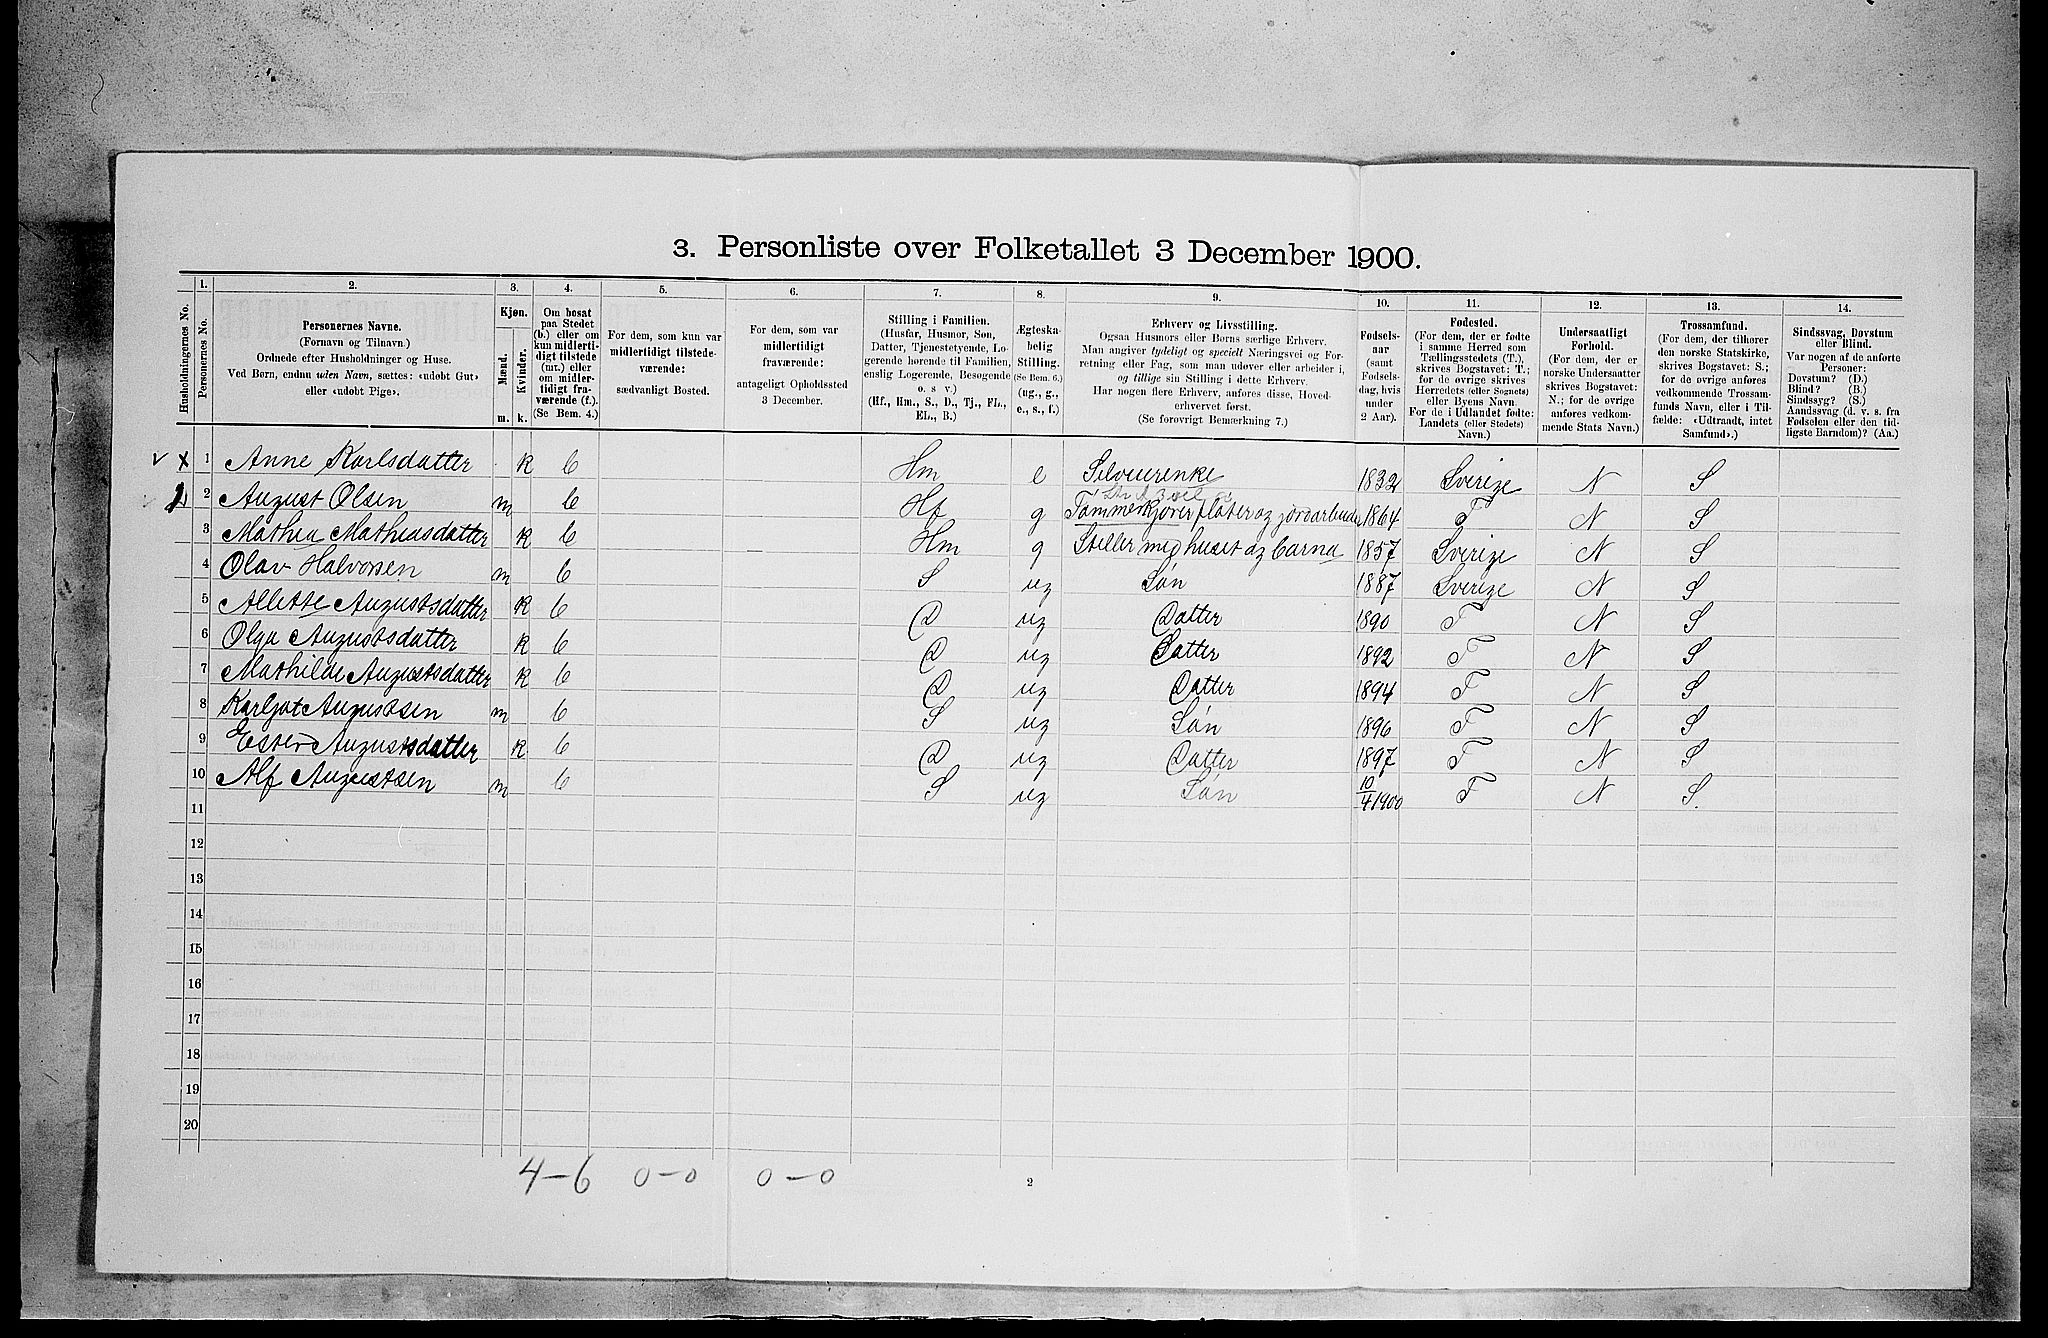 3. Personliste over Folketallet 3 December 1900.
Husholdningernes No.
1.
Personernes No.
2.
Personernes Navne.
(Fornavn og Tilnavn.)
Ordnede efter Husholdninger og Huse.
Ved Børn, endnu uden Navn, sættes: «udøbt Gut»
eller «udøbt Pige».
3.
Kjøn.
Mænd.
Kvinder.
m. k.
4.
Om bosat
paa Stedet
(b.) eller om
kun midlerti-
digt tilstede
(mt.) eller
om midler-
tidigt fra-
værende (f.).
(Se Bem. 4.)
5.
For dem, som kun var
midlertidigt tilstede-
værende:
sædvanligt Bosted.
6.
For dem, som var
midlertidigt
fraværende:
antageligt Opholdssted
3 December.
7.
Stilling i Familien.
(Husfar, Husmor, Søn,
Datter, Tjenestetyende, Lo-
gerende hørende til Familien,
enslig Logerende, Besøgende
o. s. v.)
(Hf., Hm., S., D., Tj., FL.,
EL., B.)
8.
Ægteska-
belig
Stilling.
(Se Bem. 6.)
(ug., g.,
e., s., f.)
9.
Erhverv og Livsstilling.
Ogsaa Husmors eller Børns særlige Erhverv.
Man angiver tydeligt og specielt Næringsvei og For-
retning eller Fag, som man udøver eller arbeider i,
og tillige sin Stilling i dette Erhverv.
Har nogen flere Erhverv, anføres disse, Hoved-
erhvervet først.
(Se forøvrigt Bemærkning 7.)
10.
Fødsels-
aar
(samt
Fødsels-
dag, hvis
under
2 Aar).
11.
Fødested.
(For dem, der er fødte
i samme Herred som
Tællingsstedets (T.),
skrives Bogstavet: T.;
for de øvrige skrives
Herredets (eller Sognets)
eller Byens Navn.
For de i Udlandet fødte:
Landets (eller Stedets)
Navn.)
12.
Undersaatligt
Forhold.
(For dem, der er
norske Undersaatter
skrives Bogstavet:
N.; for de øvrige
anføres vedkom-
mende Stats Navn.)
13.
Trossamfund.
(For dem, der tilhører
den norske Statskirke,
skrives Bogstavet: S.;
for de øvrige anføres
vedkommende Trossam-
funds Navn, eller i Til-
fælde: «Udtraadt, intet
Samfund».)
14.
Sindssvag, Døvstum
eller Blind.
Var nogen af de anførte
Personer:
Døvstum? (D.)
Blind? (B.)
Sindssyg? (S.)
Aandssvag (d. v. s. fra
Fødselen eller den tid-
ligste Barndom)? (Aa.)
x 1 Anne Karlsdatter k b Hm e Selveierenke 1832 Sverige N S
2 August Olsen m b Hf g Tømmerkjører fløter og jordarbeider 1864 T N S
3 Mathea Mathiasdatter k b Hm g Steller med huset og barna 1857 Sverige N S
4 Olav Halvorsen m b S ug Søn 1887 Sverige N S
5 Allette Augustsdatter k b D ug Datter 1890 T N S
6 Olga Augustsdatter k b D ug Datter 1892 T N S
7 Mathilde Augustsdatter k b D ug Datter 1894 T N S
8 Karljot Augustsen m b S ug Søn 1896 T N S
9 Ester Augustsdatter k b D ug Datter 1897 T N S
10 Alf Augustsen m b S ug Søn 10/4 1900 T N S.
11
12
13
14
15
16
17
18
19
20
4-6 0-0 0-0
2